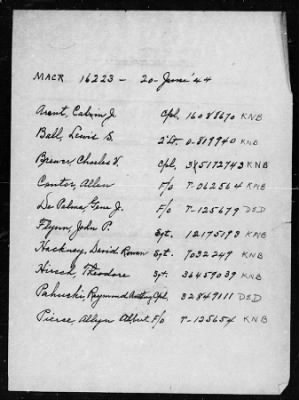 MACR 16223 - 20-June '44
Arent, Calvin J. Cpl, 16085670 KNB
Ball, Lewis S. 2'Lt. O-819940 KNB
Brewer, Charles V. Cpl, 35172743 KNB
Cantor, Allen F/o T-062564 KNB
De Palma, Gene J. F/o T-125679 DED
Flynn, John P. Sgt. 12175193 KNB
Hackney, David Roman Sgt. 7032249 KNB
Hirsch, Theodore Sgt. 36459039 KNB
Pahucki, Raymond Cpl, 32849111 DED
Pierce, Allyn Albert F/o T-125654 KNB